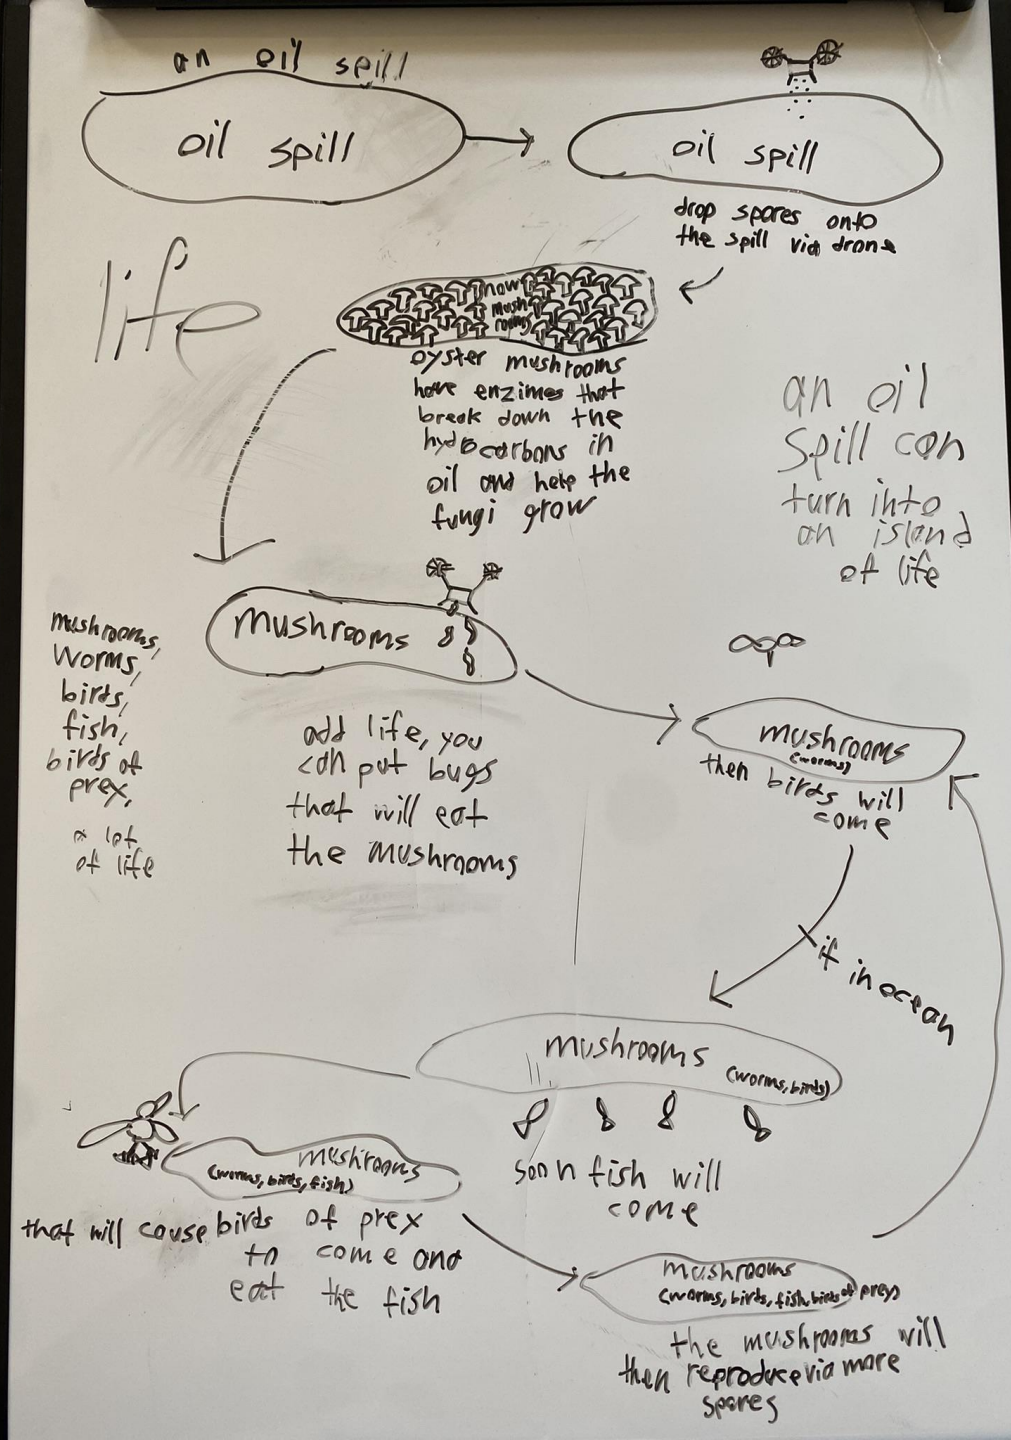 an oil spill
oil spill
oil spill
drop spores onto
the spill via drone
life
now
mush
rooms
oyster mushrooms
have enzimes that
break down the
hydrocarbons in
oil and help the
fungi grow
an oil
spill can
turn into
an island
of life
mushrooms
mushrooms,
worms,
birds,
fish,
birds of
prex,
a lot
of life
add life, you
can put bugs
that will eat
the mushrooms
mushrooms
(worms)
then birds will
come
if in ocean
mushrooms
(worms, birds)
soon fish will
come
mushrooms
(worms, birds, fish)
that will cause birds of prex
to come and
eat the fish
mushrooms
(worms, birds, fish, birds of prey)
the mushrooms will
then reproduce via more
spores